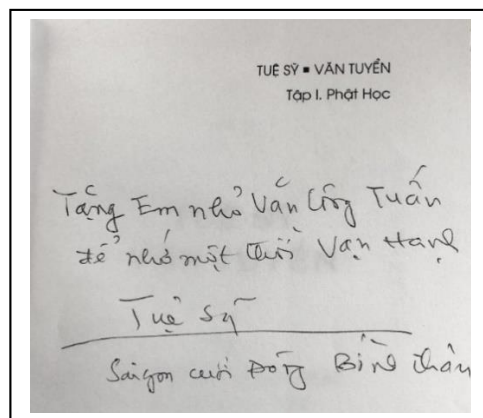 TUỆ SỸ ▪ VĂN TUYỂN
Tập I. Phật Học
Tặng Em nhỏ Văn Công Tuấn
để nhớ một thời Vạn Hạnh
Tuệ Sỹ
Saigon cuối Đông Bính Thân